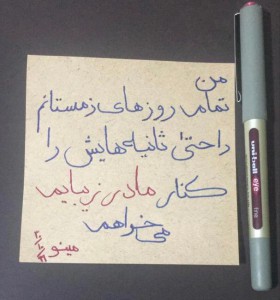 من
تمامی روزهای زمستانم
را حتی ثانیه هایش را
کنار مادر زیبایم
می خواهم
مینو
uni-ball eye
fine